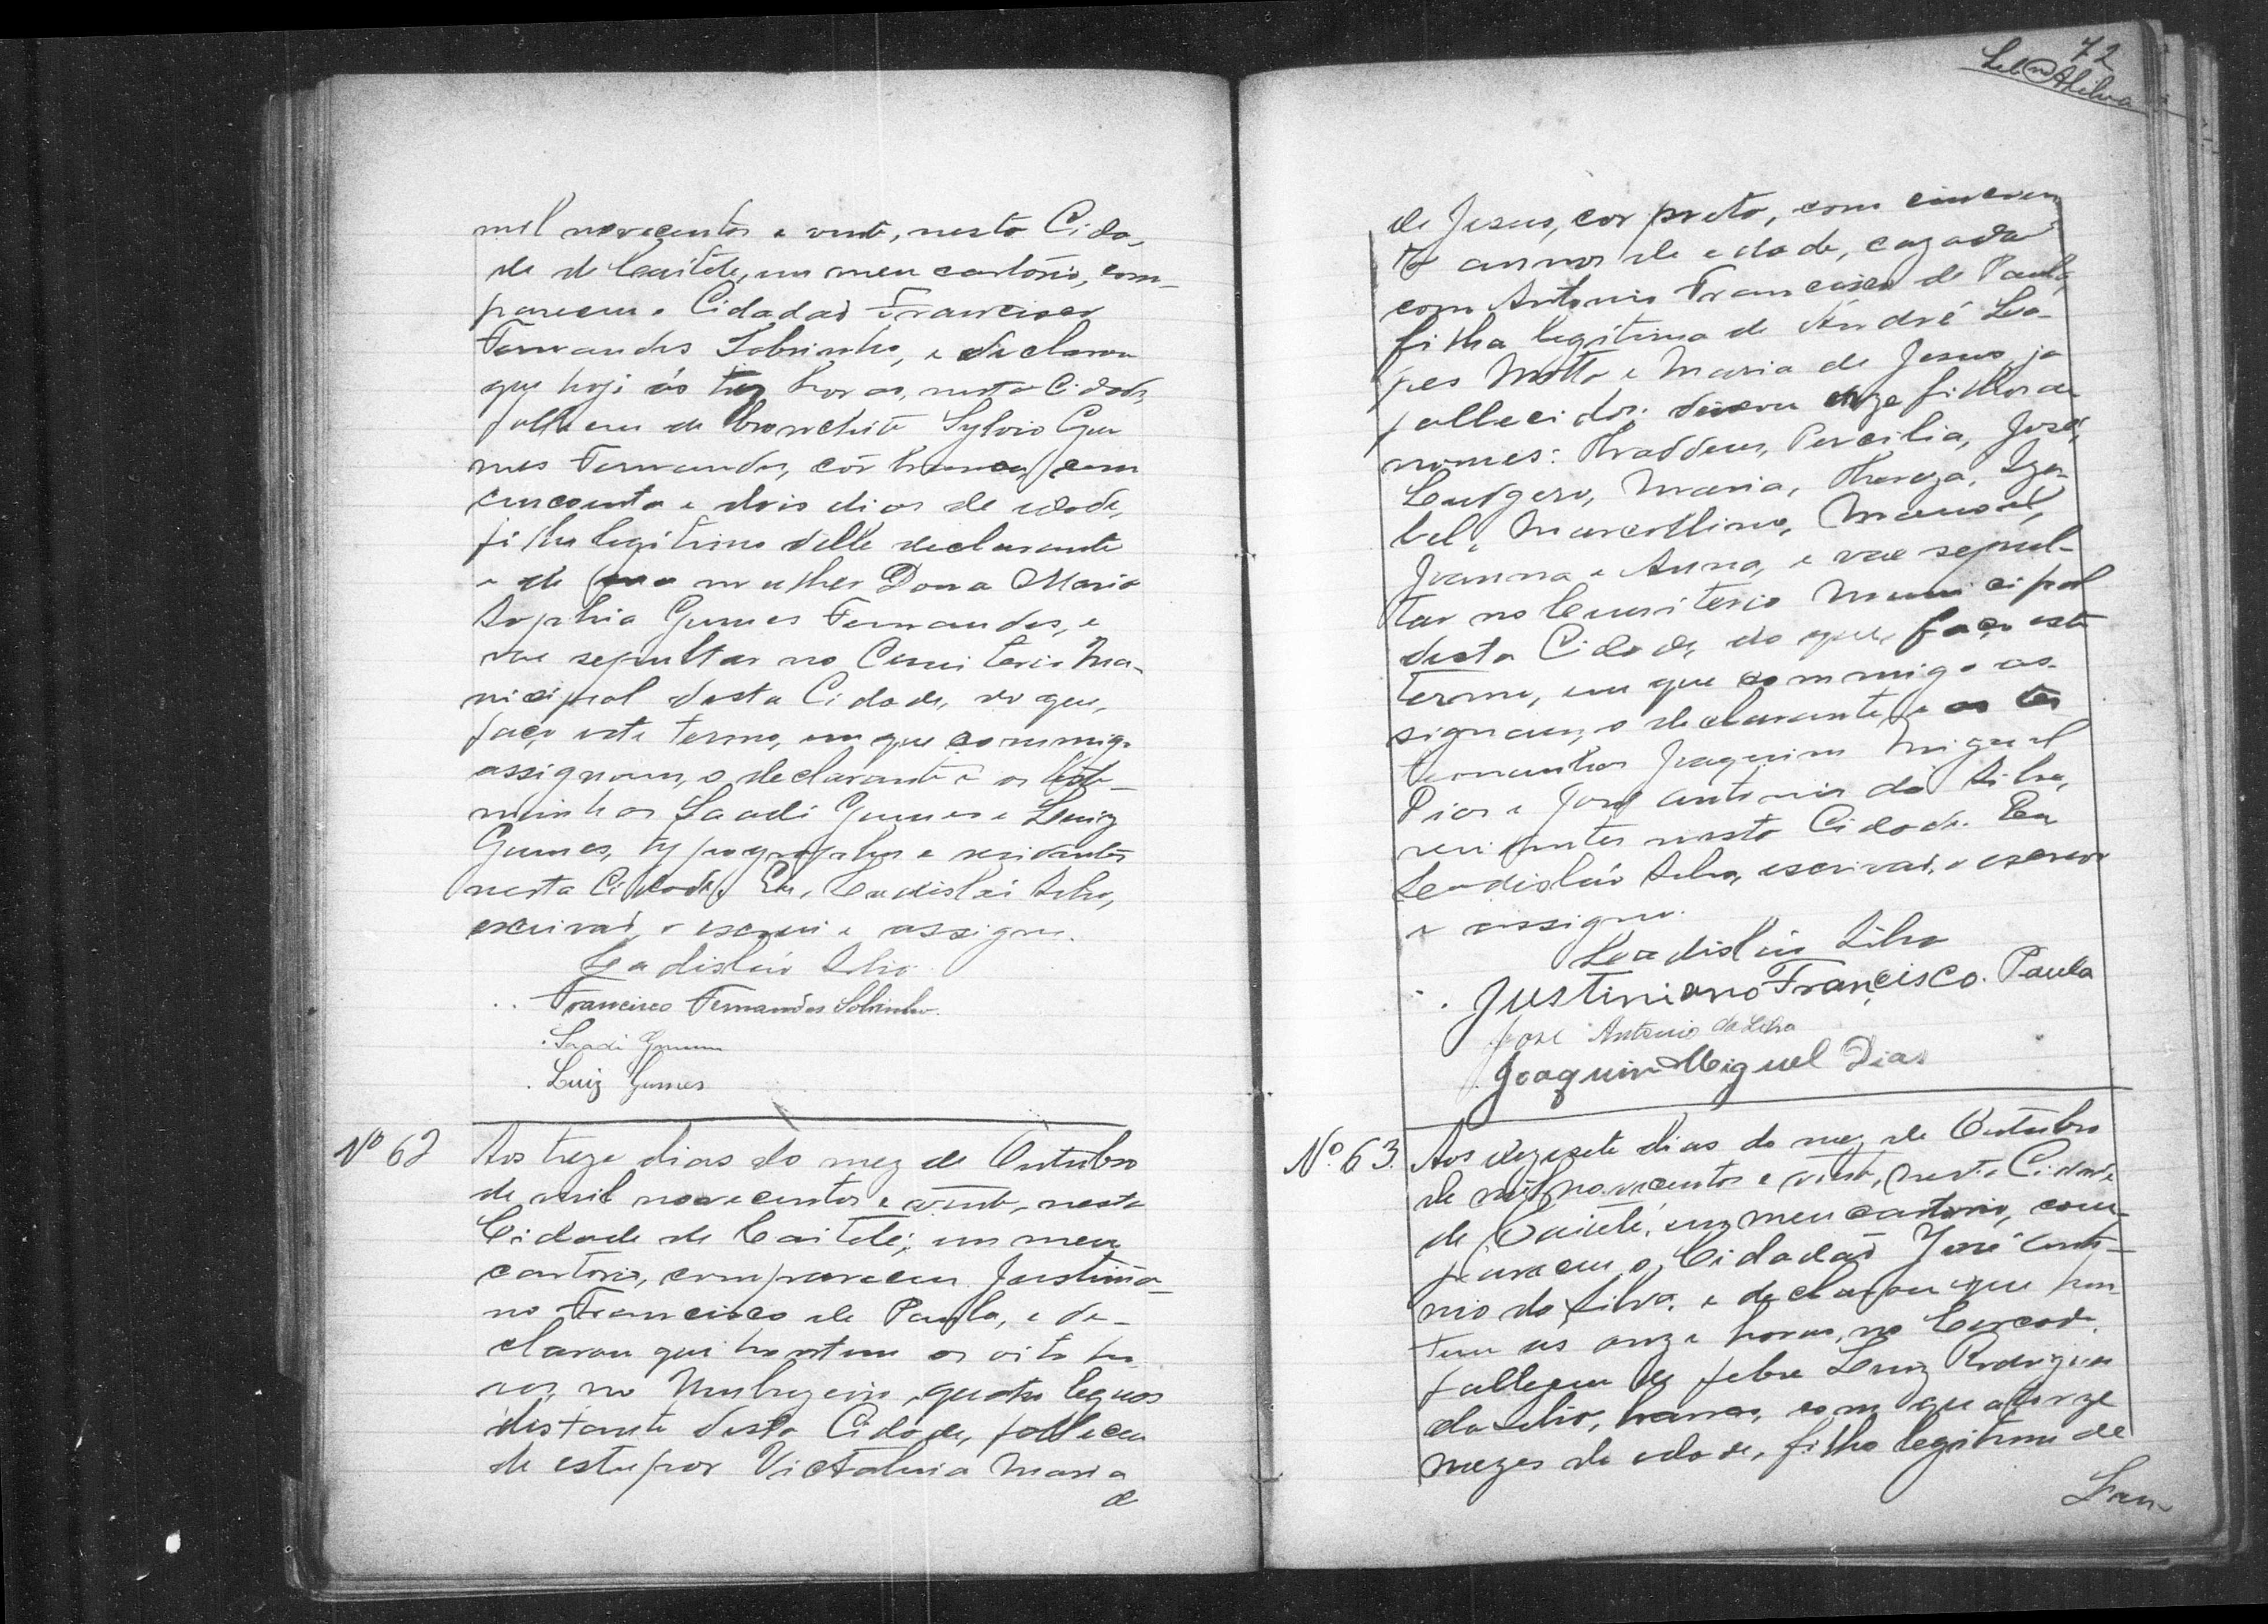 mil novecentos e vinte, nesta Cida-
de de Caiteté, em meu cartorio, com-
pareceu o Cidadão Francisco
Fernandes Sobrinho, e declarou
que hoje ás trez horas, nesta Cidade,
falleceu de bronchite Sylvio Gu
mes Fernandes, côr branca, com
cincoenta e dois dias de edade,
filho legitimo delle declarante
e de sua mulher Dona Maria
Sophia Gumes Fernandes, e
vae sepultar no Cemiterio Mu-
nicipal desta Cidade, do que,
faço este termo, em que commigo
assignam, o declarante e as teste-
munhas Saadi Gumes e Luiz
Gumes, typographos e residentes
nesta Cidade. Eu, Leadisláo Silva,
escrivão, o escrevi e assigno.
Leadisláo Silva
Francisco Fernandes Sobrinho
Saadi Gumes
Luiz Gumes
Nº 62 Aos treze dias do mez de Outubro
de mil novecentos e vinte, nesta
Cidade de Caiteté, em meu
cartorio, compareceu Justinia-
no Francisco de Paula, e de-
clarou que hontem as oito ho-
ras, no quatro leguas
distante desta Cidade, falleceu
de estupor Victalina Maria
de
72
de Jesus, cor preta, com cincoen
ta annos de edade, cazada
com Antonio Francisco de Paula,
filha legitima de André Lo-
pes Motta e Maria de Jesus, ja
fallecidos: deixou onze filhos de
nomes: Thaddeus, Percilia, José,
Leudgero, Maria, Thereza, Iza-
bel, Marcellino, Manoel,
Joanna e Anna, e vae sepul-
tar no Cemiterio Municipal
desta Cidade, do que, faço este
termo, em que commigo as-
signam, o declarante e as tes
temunhas Joaquim Miguel
Dias e José Antonio da Silva,
residentes nesta Cidade. Eu
Leadisláo Silva, escrivão, o escrevi
e assigno.
Leadisláo Silva
Justiniano Francisco. Paula
José Antonio da Silva
Joaquim Miguel Dias
Nº 63. Aos dezesete dias do mez de Outubro
de mil novecentos e vinte, nesta Cidade
de Caiteté, em meu cartorio, com-
pareceu o Cidadão José Anto-
nio da Silva, e declarou que hon
tem as onze horas, no Cercado,
falleceu de febre Luiz Rodrigues
da Silva, branco, com quatorze
mezes de edade, filho legitimo de